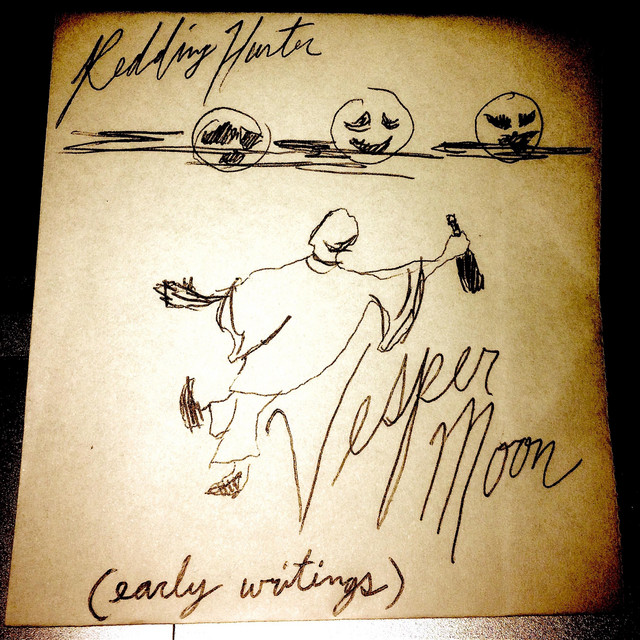 Redding Hunter
Vesper
Moon
(early writings)